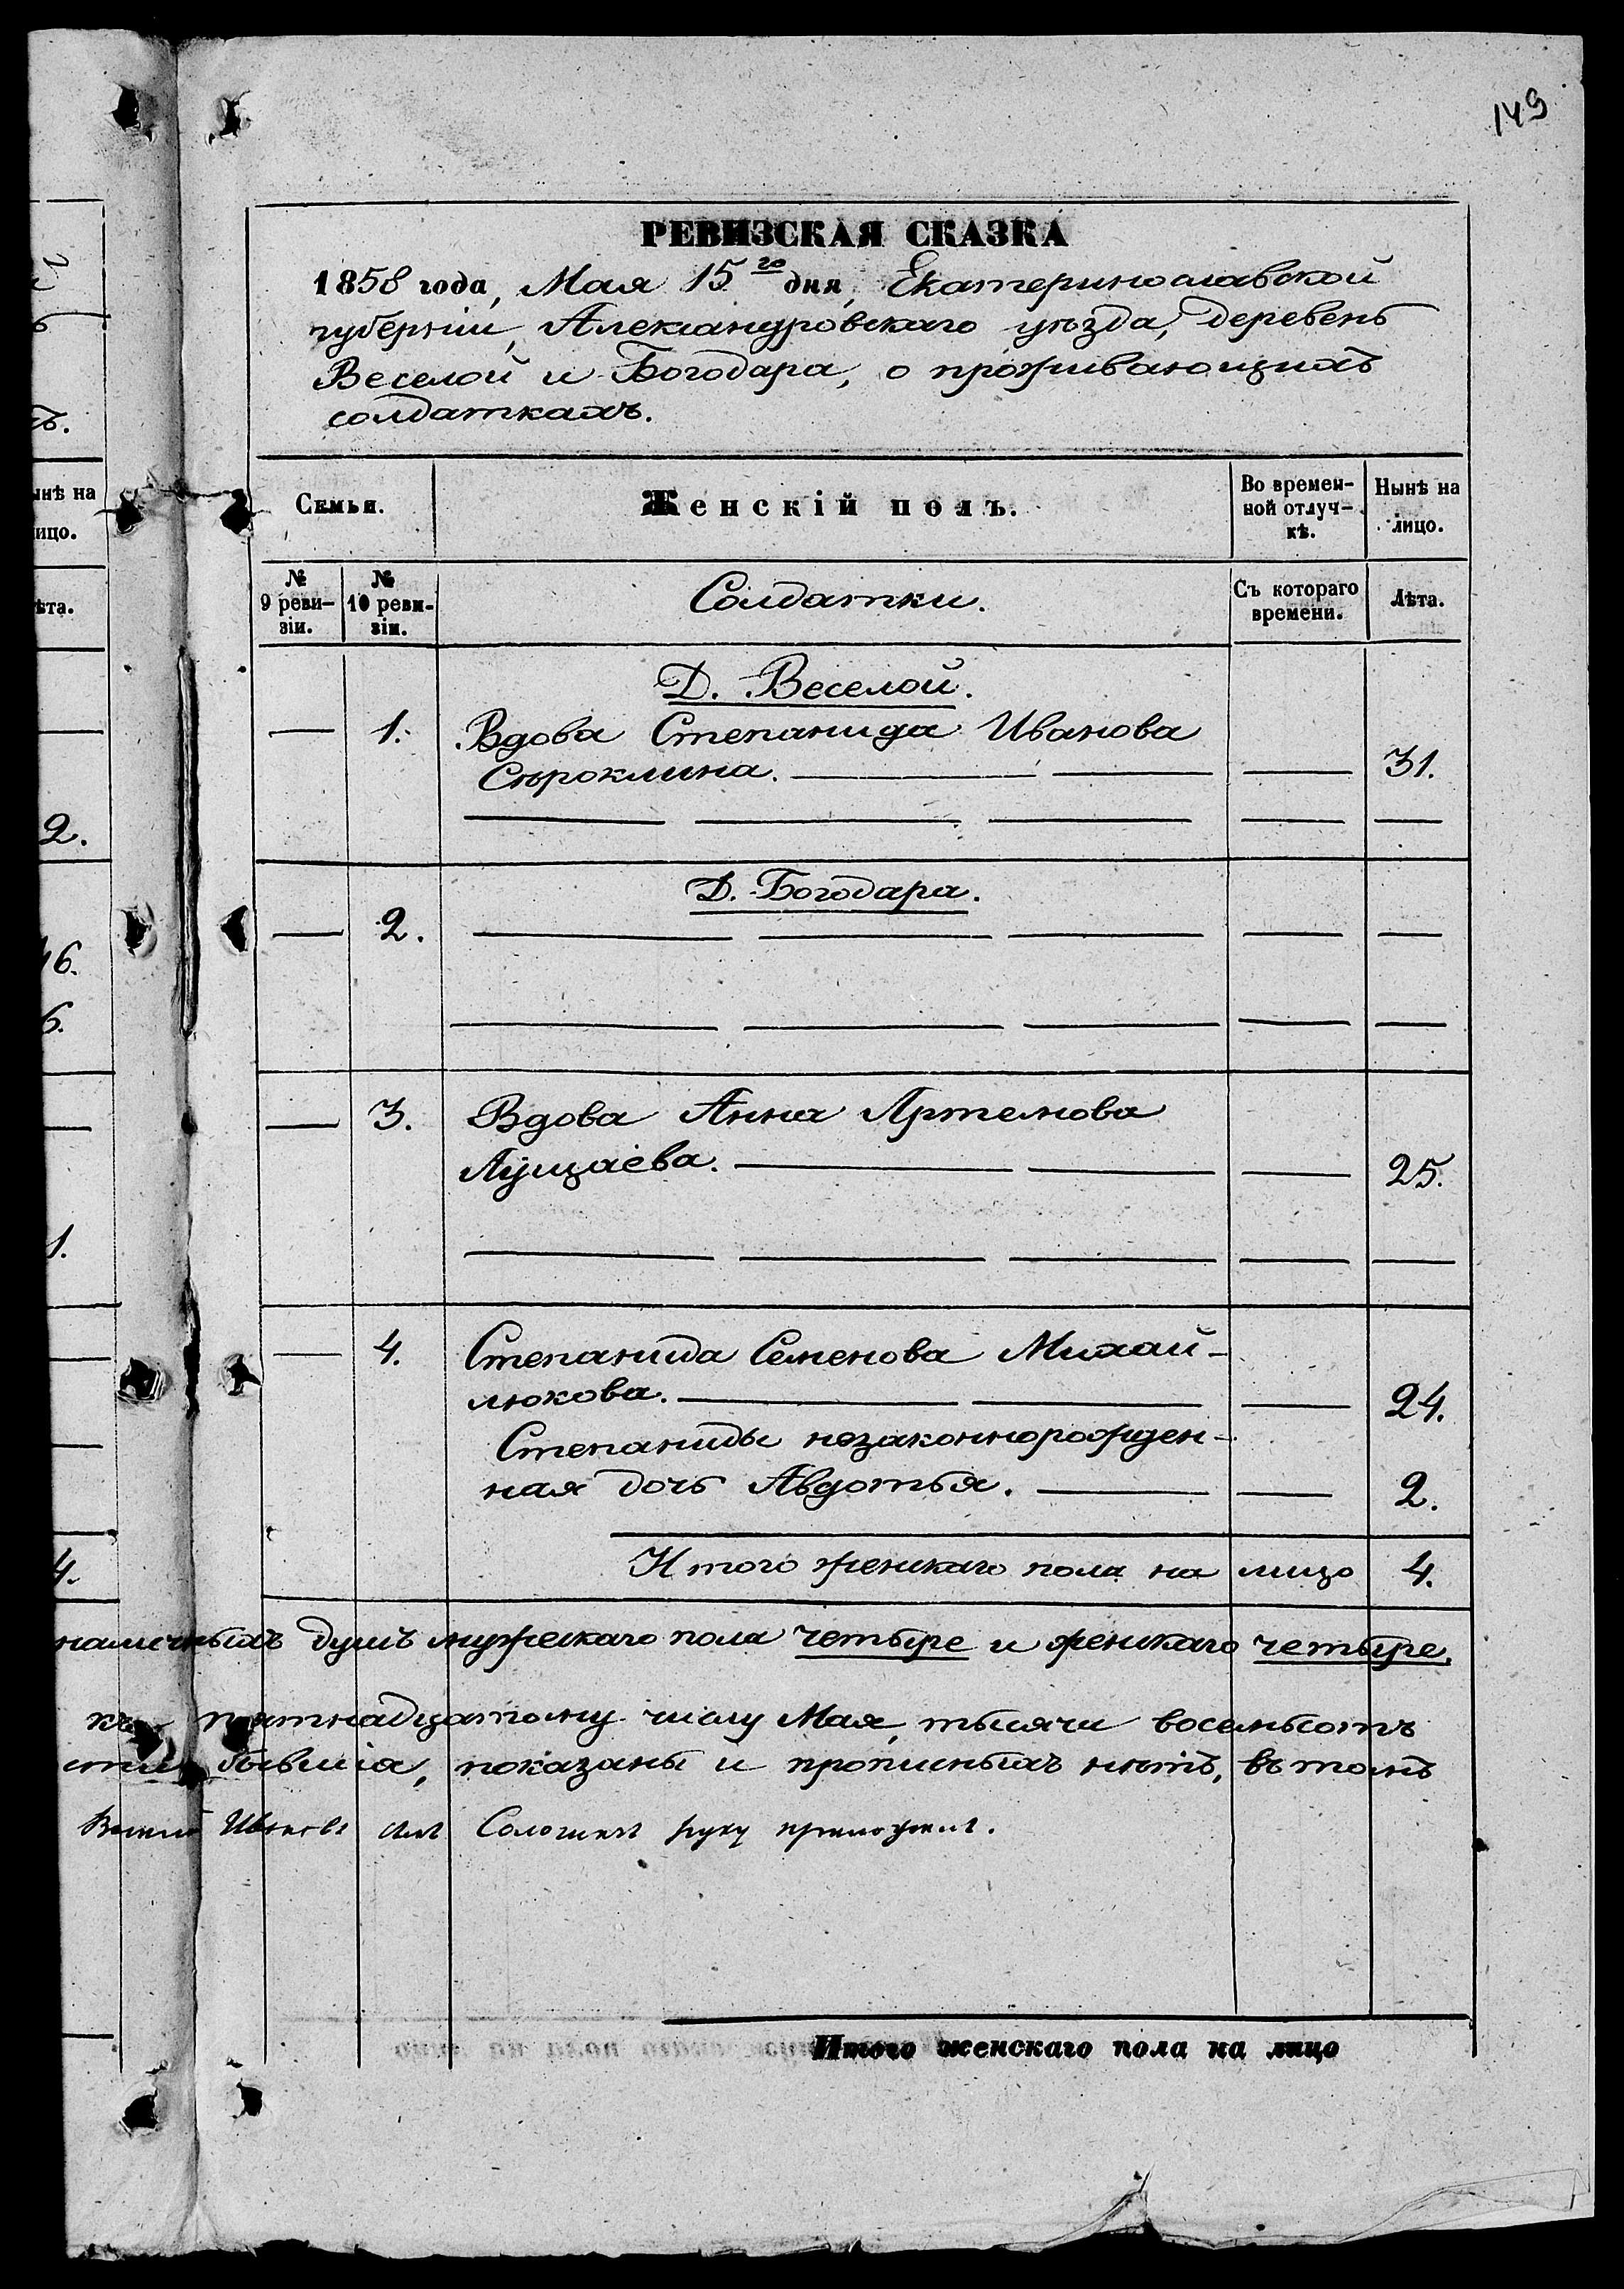 149
РЕВИЗСКАЯ СКАЗКА
1858 года, Мая 15го дня, Екатеринославской
губерніи, Александровскаго уѣзда, деревень
Веселой и Богодара, о проживающихъ
солдаткахъ.
Семьи.
Женскій полъ.
Во времен-
ной отлуч-
кѣ.
Нынѣ на
лицо.
№
9 реви-
зіи.
№
10 реви-
зіи.
Солдатки.
Съ котораго
времени.
Лѣта.
Д. Веселой.
— 1. Вдова Степанида Иванова
Сѣроклина. — — — 31.
Д. Богодара.
— 2. — — — — —
— 3. Вдова Анна Артемова
Лущаева. — — — 25.
— 4. Степанида Семенова Михай-
люкова. — — — 24.
Степаниды незаконнорожден-
ная дочь Авдотья. — — 2.
Итого женскаго пола на лицо 4.
наличныхъ душъ мужескаго пола четыре и женскаго четыре.
къ пятнадцатому числу Мая, тысяча восемьсотъ
бывшія, показаны и прописныхъ нѣтъ, въ томъ
Ивановъ сынъ руку приложилъ.
Итого женскаго пола на лицо
ынѣ на
ицо.
ѣта.
2.
16.
6.
1.
4.